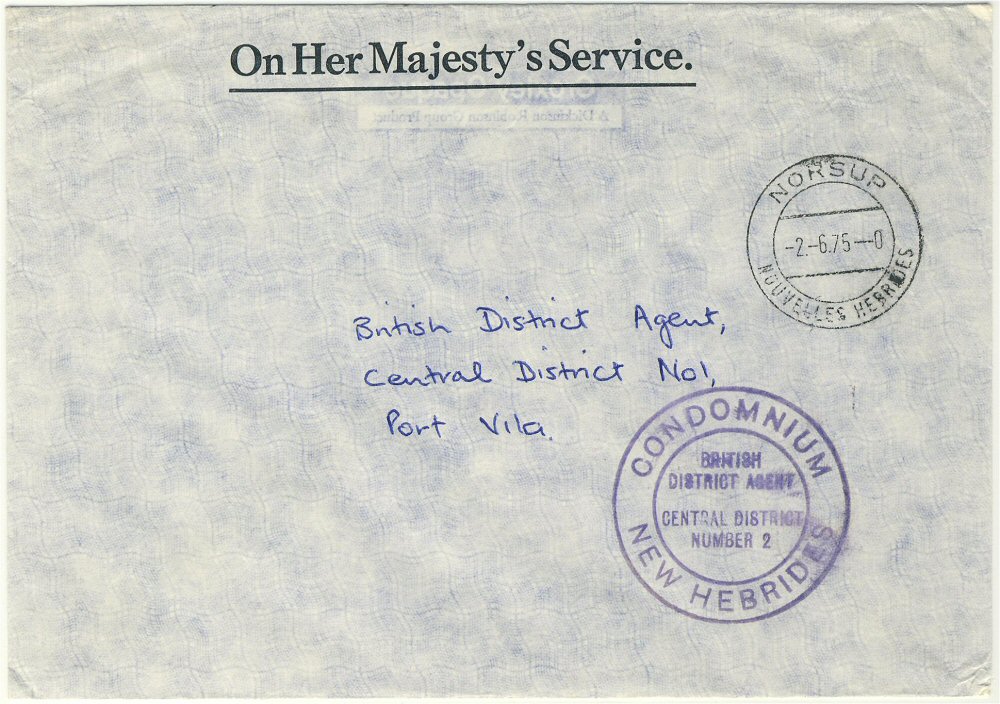 On Her Majesty's Service.
A Dickinson Robinson Group Product
NORSUP
-2.-6.75--0
NOUVELLES HEBRIDES
British District Agent,
Central District No1,
Port Vila.
CONDOMNIUM
BRITISH
DISTRICT AGENT
CENTRAL DISTRICT
NUMBER 2
NEW HEBRIDES